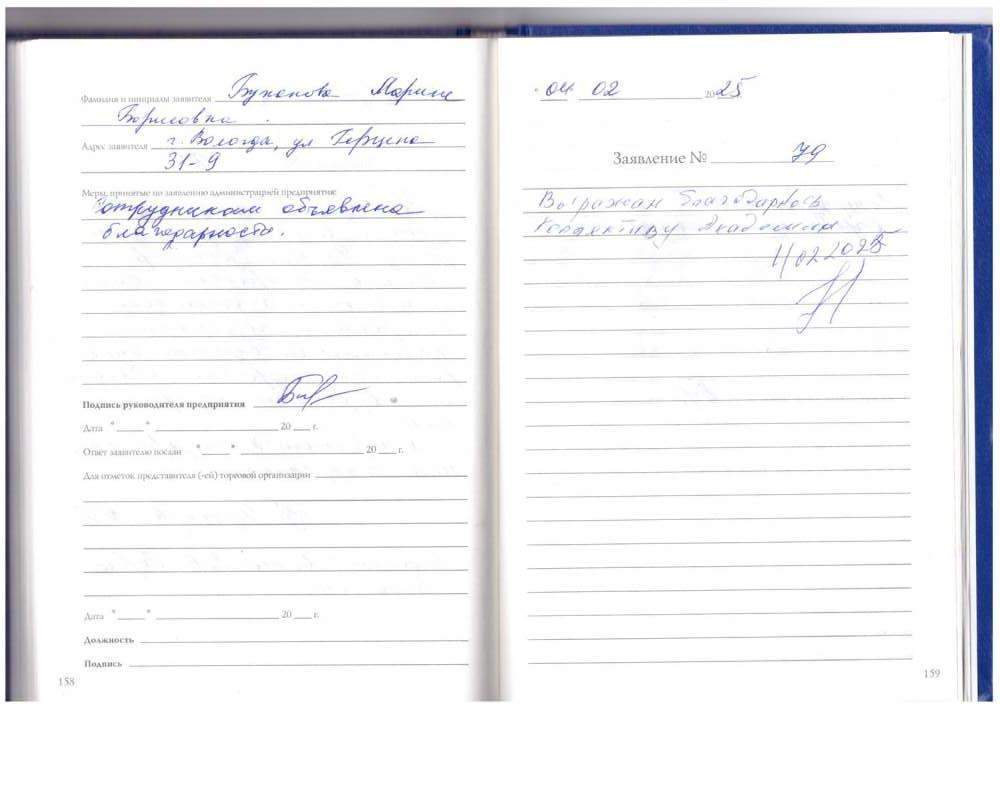 Фамилия и инициалы заявителя Буканова Марина
Борисовна.
Адрес заявителя г. Вологда, ул Герцена
31-9
Меры, принятые по заявлению администрацией предприятия:
Сотрудникам объявлена
благодарность.
Подпись руководителя предприятия
Дата "____" ____________ 20 ___ г.
Ответ заявителю послан "____" ____________ 20 ___ г.
Для отметок представителя (-ей) торговой организации
Дата "____" ____________ 20 ___ г.
Должность
Подпись
158
04 02 2025
Заявление № 79
Выражаю благодарность
Коллективу Академии
11 02 2025
159